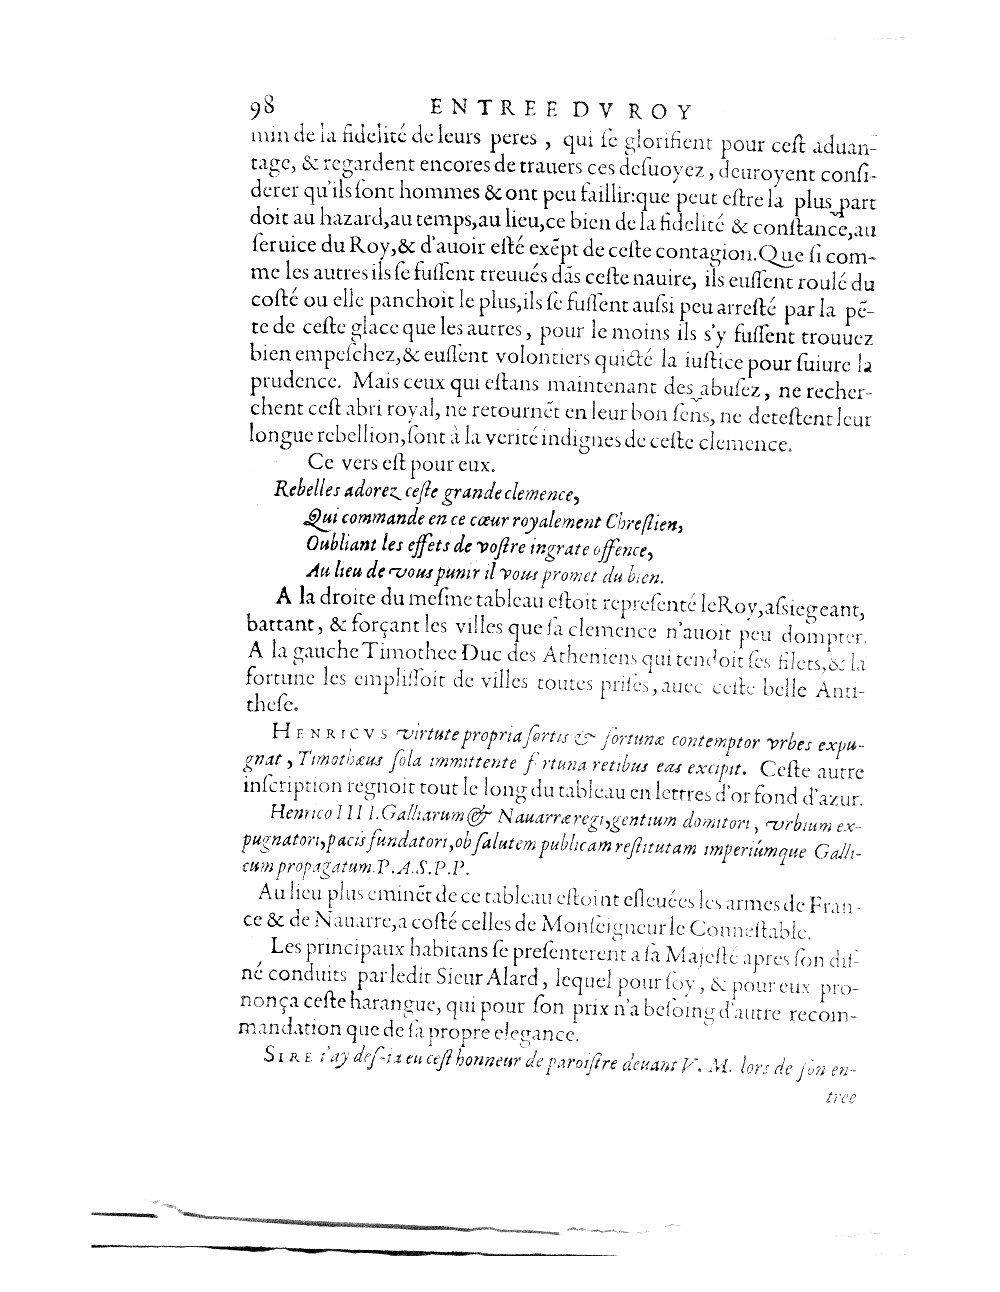 98 ENTREE DV ROY
min de la fidelité de leurs peres , qui ſe glorifient pour ceſt aduan-
tage, & regardent encores de trauers ces deſuoyez , deuroyent conſi-
derer qu'ils ſont hommes & ont peu faillir: que peut eſtre la plus part
doit au hazard,au temps,au lieu,ce bien de la fidelité & conſtance,au
ſeruice du Roy,& d'auoir eſté exẽpt de ceſte contagion. Que ſi com-
me les autres ils ſe fuſſent treuués dãs ceſte nauire, ils euſſent roulé du
coſté ou elle panchoit le plus,ils ſe fuſſent auſsi peu arreſté par la pẽ-
te de ceſte glace que les autres , pour le moins ils s'y fuſſent trouuez
bien empeſchez,& euſſent volontiers quicté la iuſtice pour ſuiure la
prudence. Mais ceux qui eſtans maintenant des abuſez , ne recher-
chent ceſt abri royal, ne retournẽt en leur bon ſens, ne deteſtent leur
longue rebellion,ſont à la verité indignes de ceſte clemence.
Ce vers eſt pour eux.
Rebelles adorez ceſte grande clemence,
Qui commande en ce cœur royalement Chreſtien,
Oubliant les effets de voſtre ingrate offence,
Au lieu de vous punir il vous promet du bien.
A la droite du meſme tableau eſtoit repreſenté le Roy,aſsiegeant,
battant , & forçant les villes que ſa clemence n'auoit peu dompter.
A la gauche Timothee Duc des Atheniens qui tendoit ſes filets,& la
fortune les empliſſoit de villes toutes priſes , auec ceſte belle Anti-
theſe.
HENRICVS virtute propria fortis & fortunæ contemptor vrbes expu-
gnat , Timothæus ſola immittente f rtuna retibus eas excipit. Ceſte autre
inſcription regnoit tout le long du tableau en lettres d'or fond d'azur.
Henrico IIII. Galliarum & Nauarræ regi,gentium domitori , vrbium ex-
pugnatori,pacis fundatori,ob ſalutem publicam reſtitutam imperiúmque Galli-
cum propagatum.P. A. S. P. P.
Au lieu plus eminẽt de ce tableau eſtoint eſleuées les armes de Fran-
ce & de Nauarre,a coſté celles de Monſeigneur le Conneſtable.
Les principaux habitans ſe preſenterent a ſa Majeſté apres ſon diſ-
né conduits par ledit Sieur Alard , lequel pour ſoy , & pour eux pro-
nonça ceſte harangue, qui pour ſon prix n'a beſoing d'autre recom-
mandation que de ſa propre elegance.
SIRE i'ay deſ-ia eu ceſt honneur de paroiſtre deuant V. M. lors de ſon en-
tree